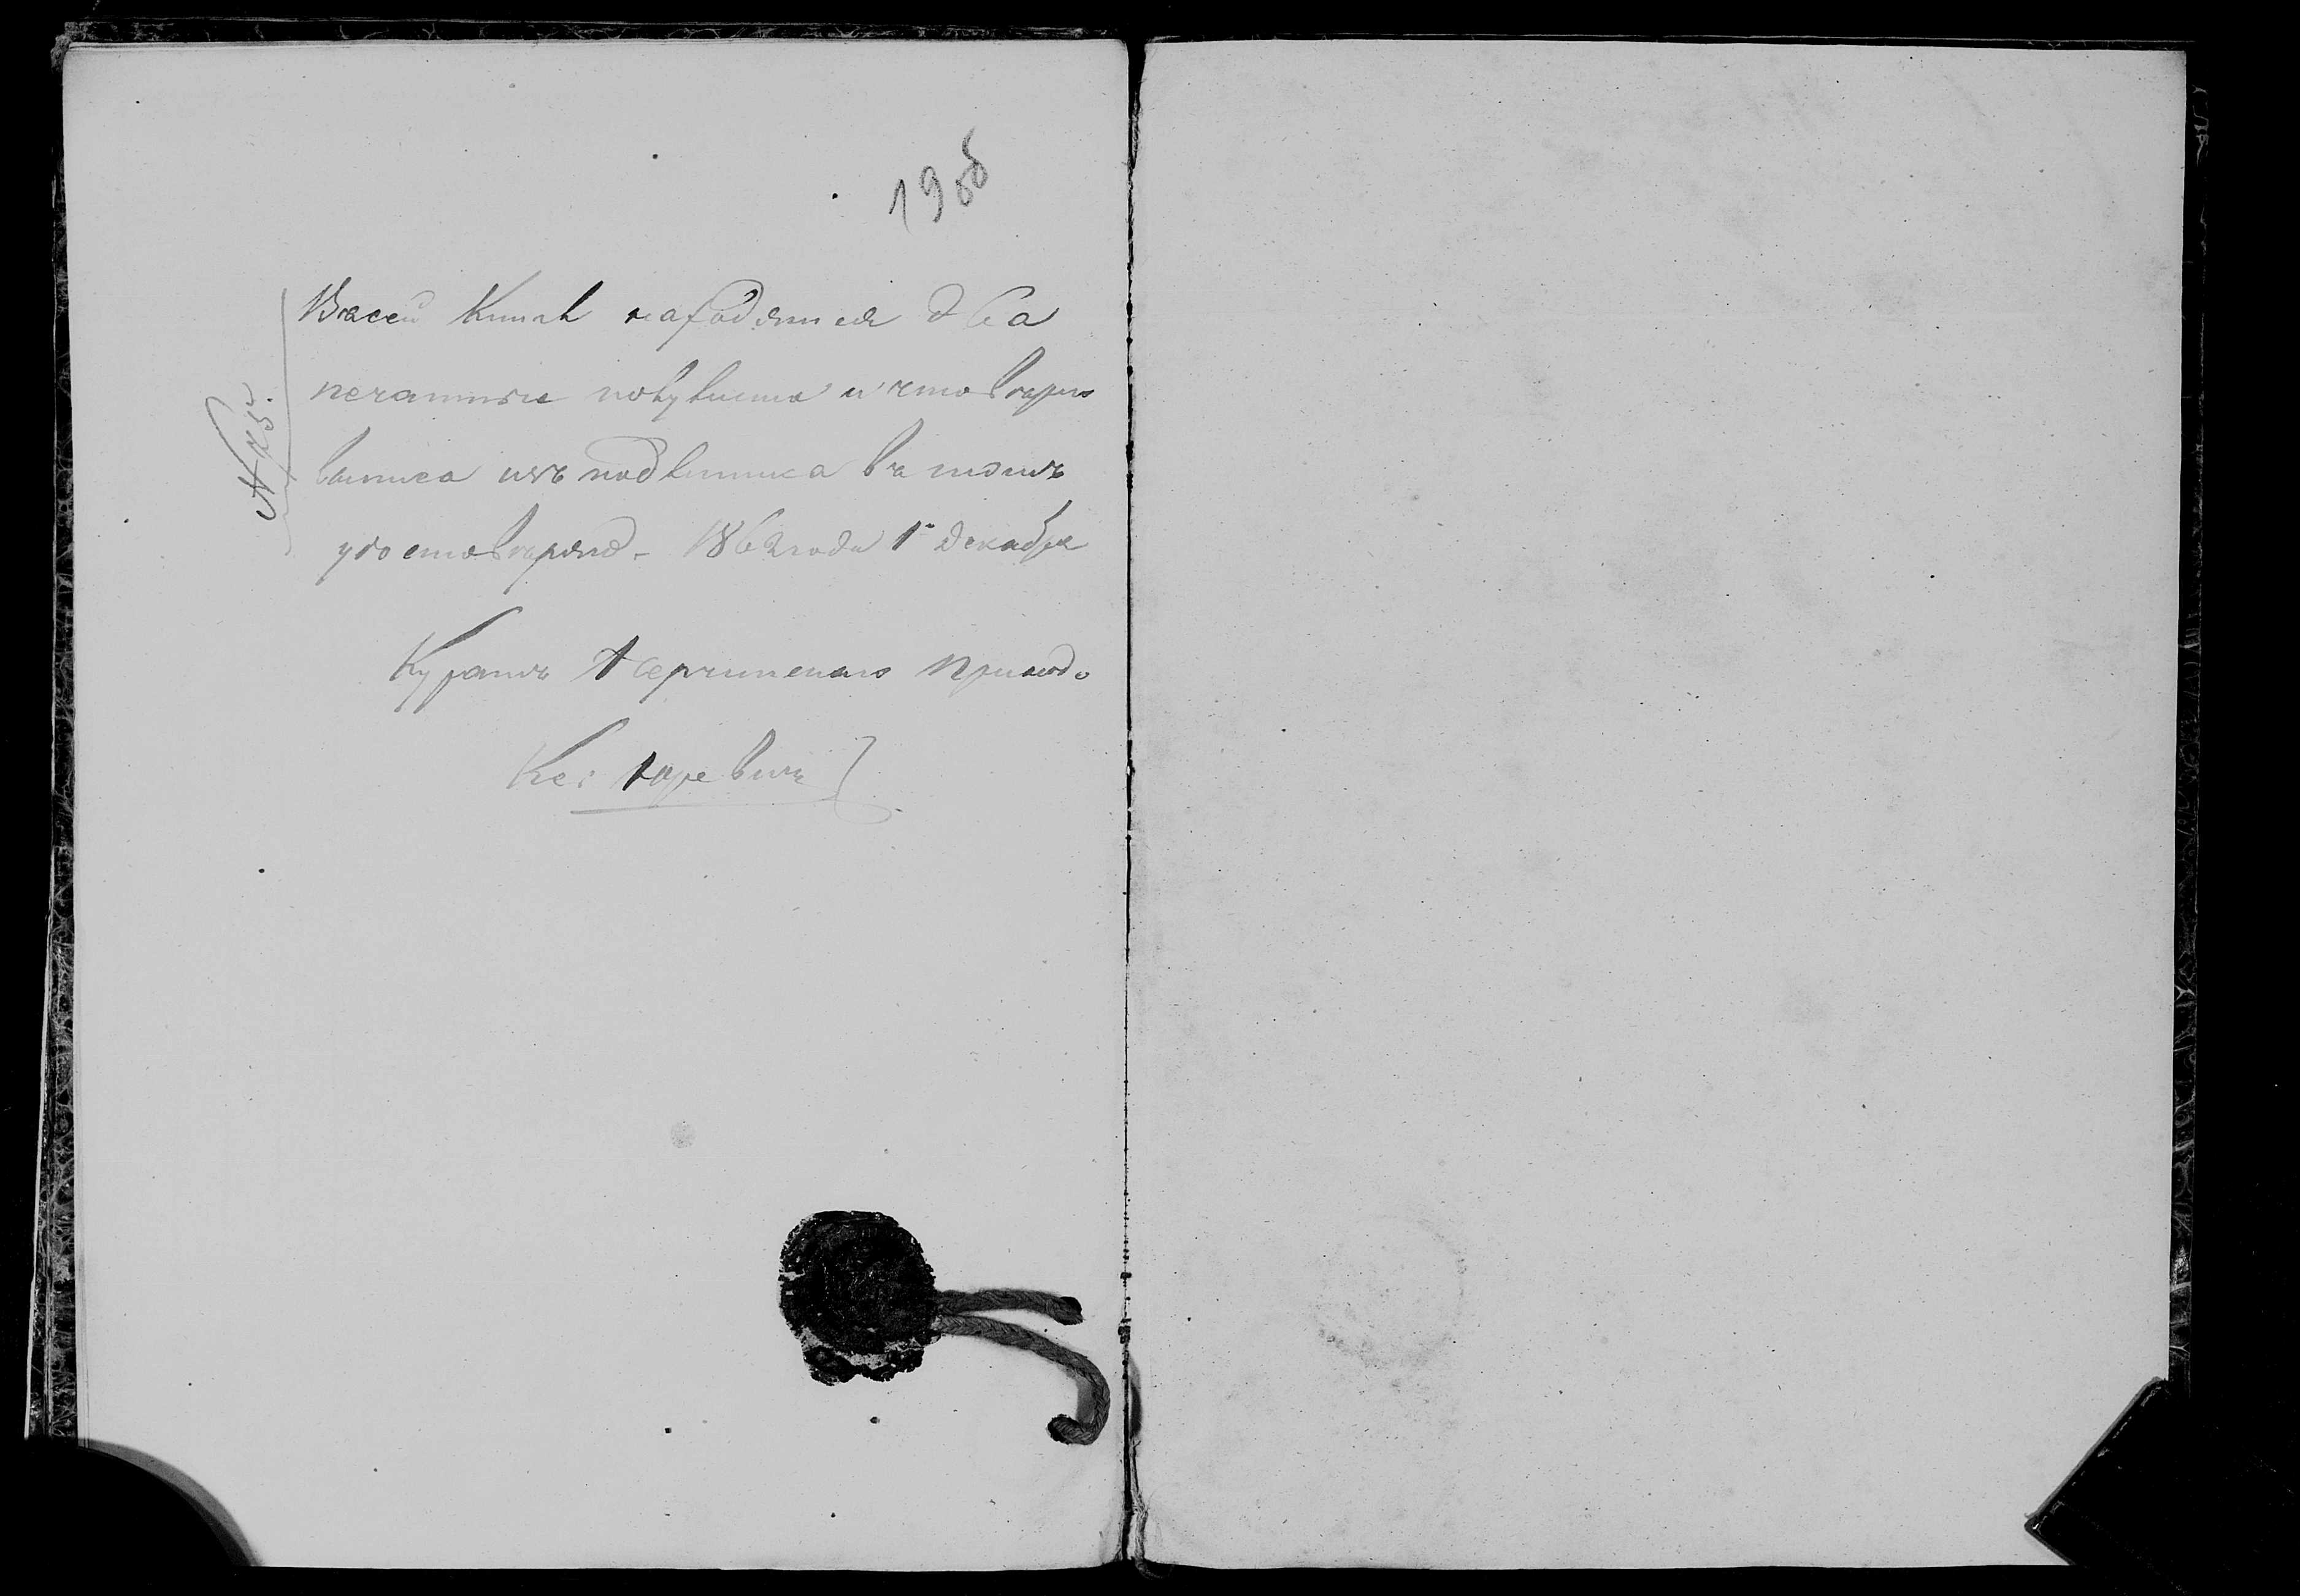 19об
Въсей Книгѣ находятся два
печатные полулиста и что вѣрно
выписа изъ подлинника въ томъ
удостовѣряю - 1862 года 1 Декабря
Куратъ Приход.
Кс: